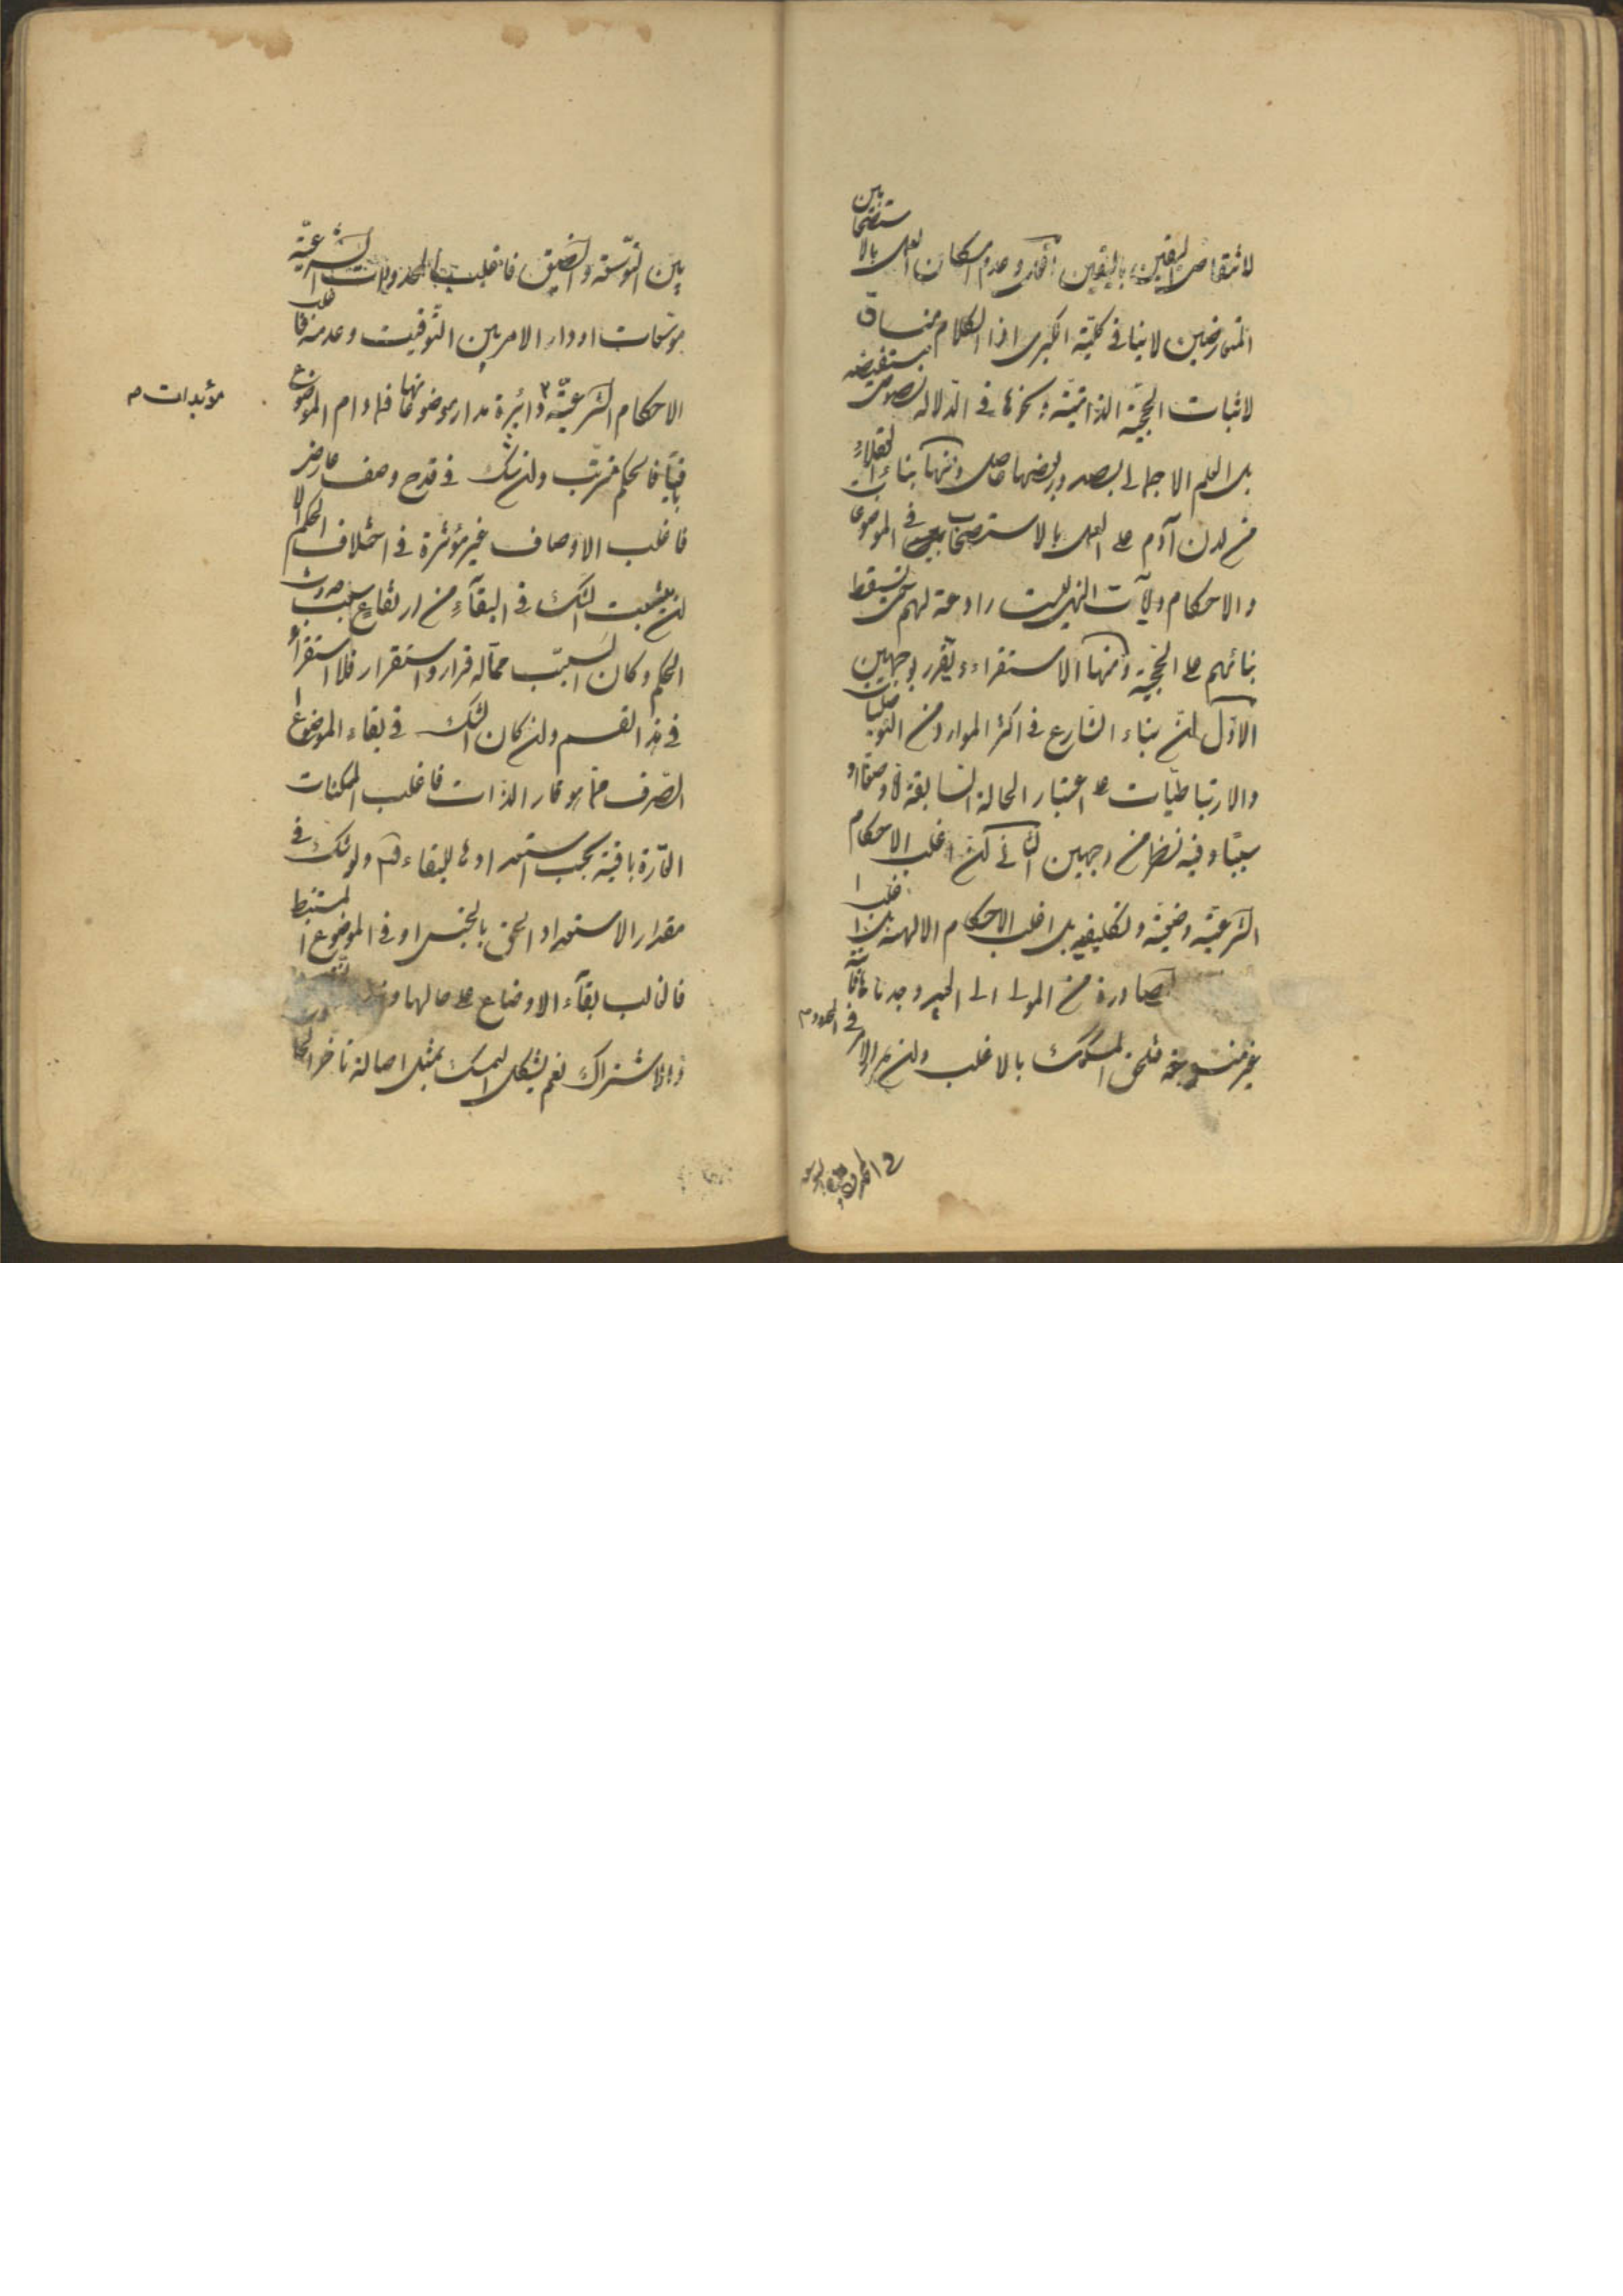 لانتقاض اليقين باليقين وعدم امكان العمل بالاستصحابين
المتعارضين لا ينافى كلية الكبرى اذ الكلام مساق
لاثبات الحجية الذاتية ونحوها فى الدلالة نصوص مستفيضه
بل العلم الاجمالى بصدور بعضها حاصل ومنها بناء العقلاء
من لدن آدم على العمل بالاستصحاب فى الموضوعات
والاحكام ولآيات النهى ليست رادعة لهم حتى يسقط
بنائهم على الحجية ومنها الاستقراء ويقرر بوجهين
الاول ان بناء الشارع فى اكثر الموارد من التوصليات
والارتباطيات على اعتبار الحالة السابقة وصفا او
سببا وفيه نظر من وجهين الثانى ان اغلب الاحكام
الشرعية وضعية وتكليفيه بل اغلب الاحكام الالهية بل اغلب
الصادرة من الموالى الى العبيد وجدناها ثابتة
غير منسوخه فيلحق المشكوك بالاغلب وان دار الامر
فى المحدود
بين التوسعة والضيق فاغلب المحدودات الشرعية
موسعات او دار الامر بين التوقيت وعدمه فاغلب
الاحكام الشرعية دائرة مدار موضوعاتها فما دام الموضوع
باقيا فالحكم مترتب وان شك فى قدح وصف عارض
فاغلب الاوصاف غير مؤثرة فى اختلاف الحكم الا
ان ينبعث الشك فى البقاء من ارتفاع سبب حدوث
الحكم وكان السبب مما له قرار واستقرار فلا استقراء
فى هذا القسم وان كان الشك فى بقاء الموضوع
الصرف مما هو قار الذات فاغلب الممكنات
القارة باقية بحسب استعدادها للبقاء ولو شك فى
مقدار الاستعداد الحق بالجنس او فى الموضوع المستنبط
فالغالب بقاء الاوضاع على حالها
والاشتراك نعم يشكل التمسك بمثل اصالة تاخر الحادث
مؤبدات